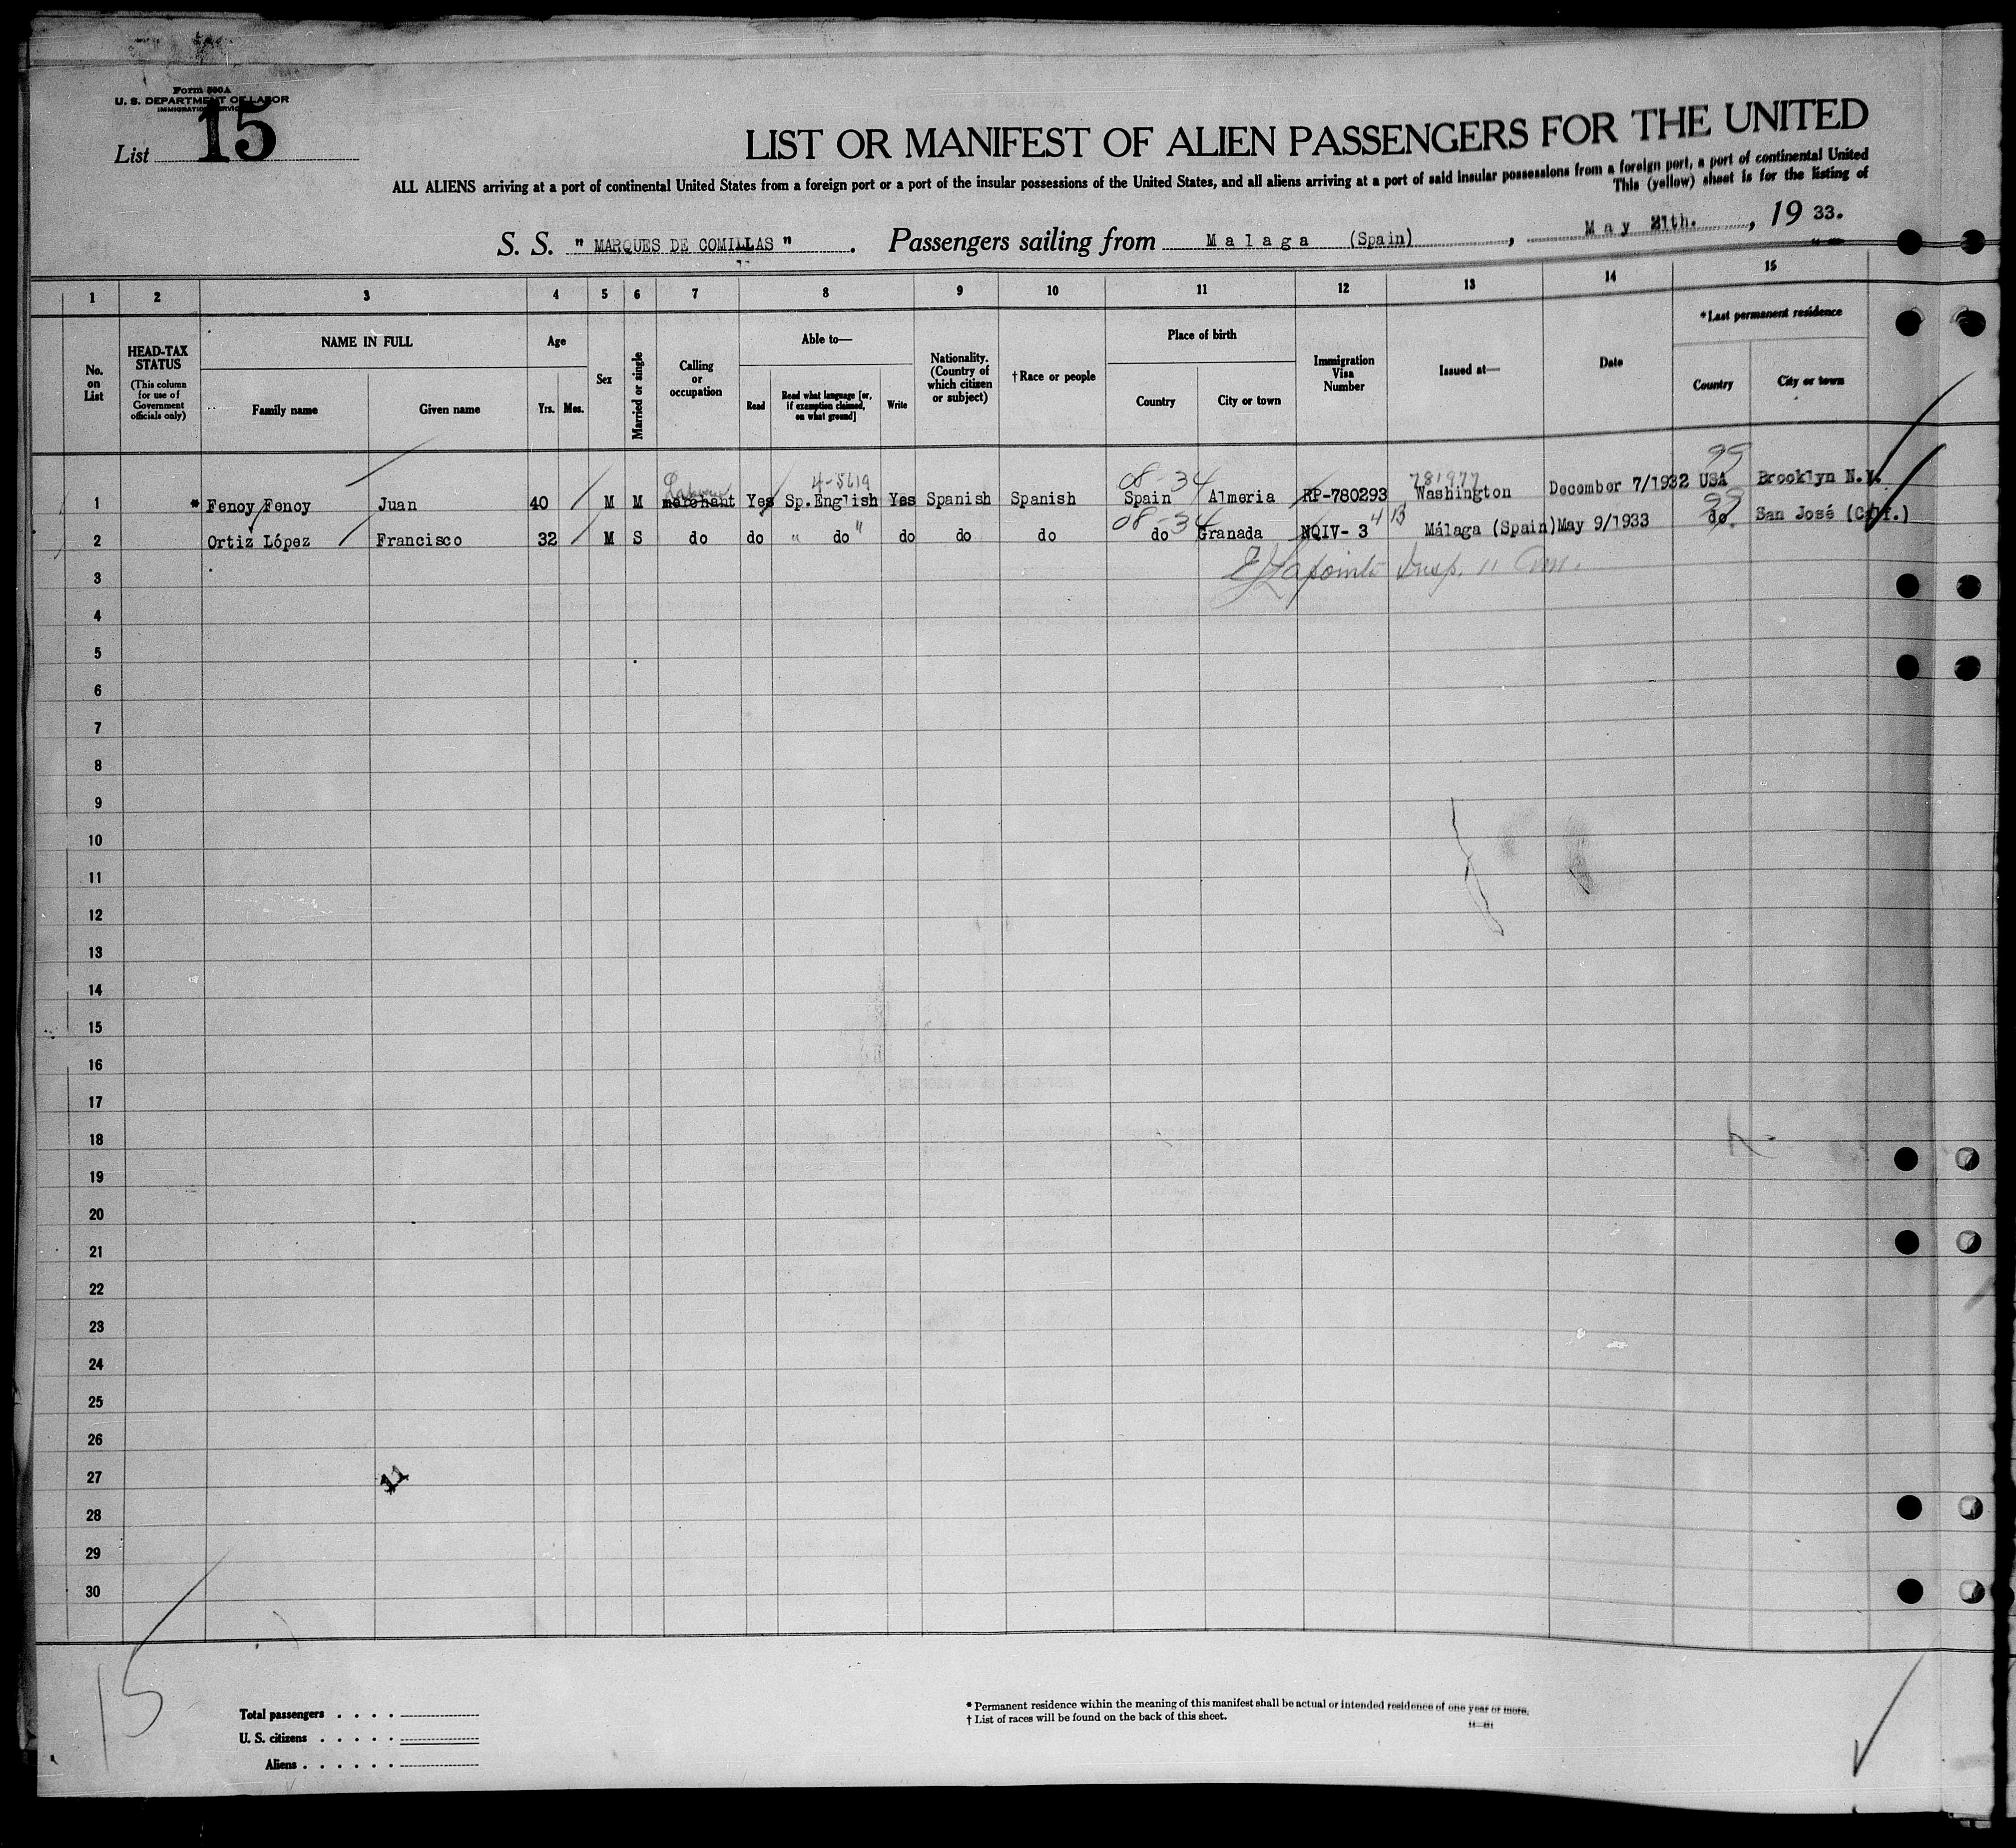 Form 500A
U. S. DEPARTMENT OF LABOR
IMMIGRATION SERVICE
List 15
LIST OR MANIFEST OF ALIEN PASSENGERS FOR THE UNITED
ALL ALIENS arriving at a port of continental United States from a foreign port or a port of the insular possessions of the United States, and all aliens arriving at a port of said insular possessions from a foreign port, a port of continental United
This (yellow) sheet is for the listing of
S. S. " MARQUES DE COMILLAS ". Passengers sailing from Malaga (Spain), May 21th., 19 33.
1 2 3 4 5 6 7 8 9 10 11 12 13 14 15
No. on List
HEAD-TAX STATUS
(This column for use of Government officials only)
NAME IN FULL
Family name
Given name
Age
Yrs.
Mos.
Sex
Married or single
Calling or occupation
Able to—
Read
Read what language [or, if exemption claimed, on what ground]
Write
Nationality. (Country of which citizen or subject)
†Race or people
Place of birth
Country
City or town
Immigration Visa Number
Issued at—
Date
*Last permanent residence
Country
City or town
Laborer 4-5619 08-34 781977 99
1 * Fenoy Fenoy Juan 40 M M merchant Yes Sp.English Yes Spanish Spanish Spain Almeria RP-780293 Washington December 7/1932 USA Brooklyn N.Y.
08-34 413 99
2 Ortiz López Francisco 32 M S do do " do " do do do do Granada NQIV- 3 Málaga (Spain) May 9/1933 do. San José (Calf.)
3 Lapointe Insp.
4
5
6
7
8
9
10
11
12
13
14
15
16
17
18
19
20
21
22
23
24
25
26
27 41
28
29
30
15
Total passengers . . . .
U. S. citizens . . . . .
Aliens . . . . . .
* Permanent residence within the meaning of this manifest shall be actual or intended residence of one year or more.
† List of races will be found on the back of this sheet.